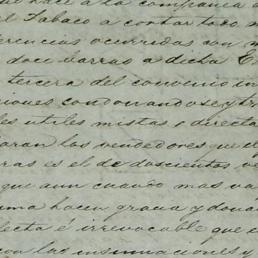 que hace a la compañía
el Tabaco a contar todo
erencias ocurridas con
doce barras a dicha
tercera del convenio in
iones condonandose y tr
les utiles mistas o directa
aran los vendedores que el
ras es el de doscientos ve
que aun cuando mas va
uma hacen gracia y dona
fecta é irrevocable que
con las insinuaciones y